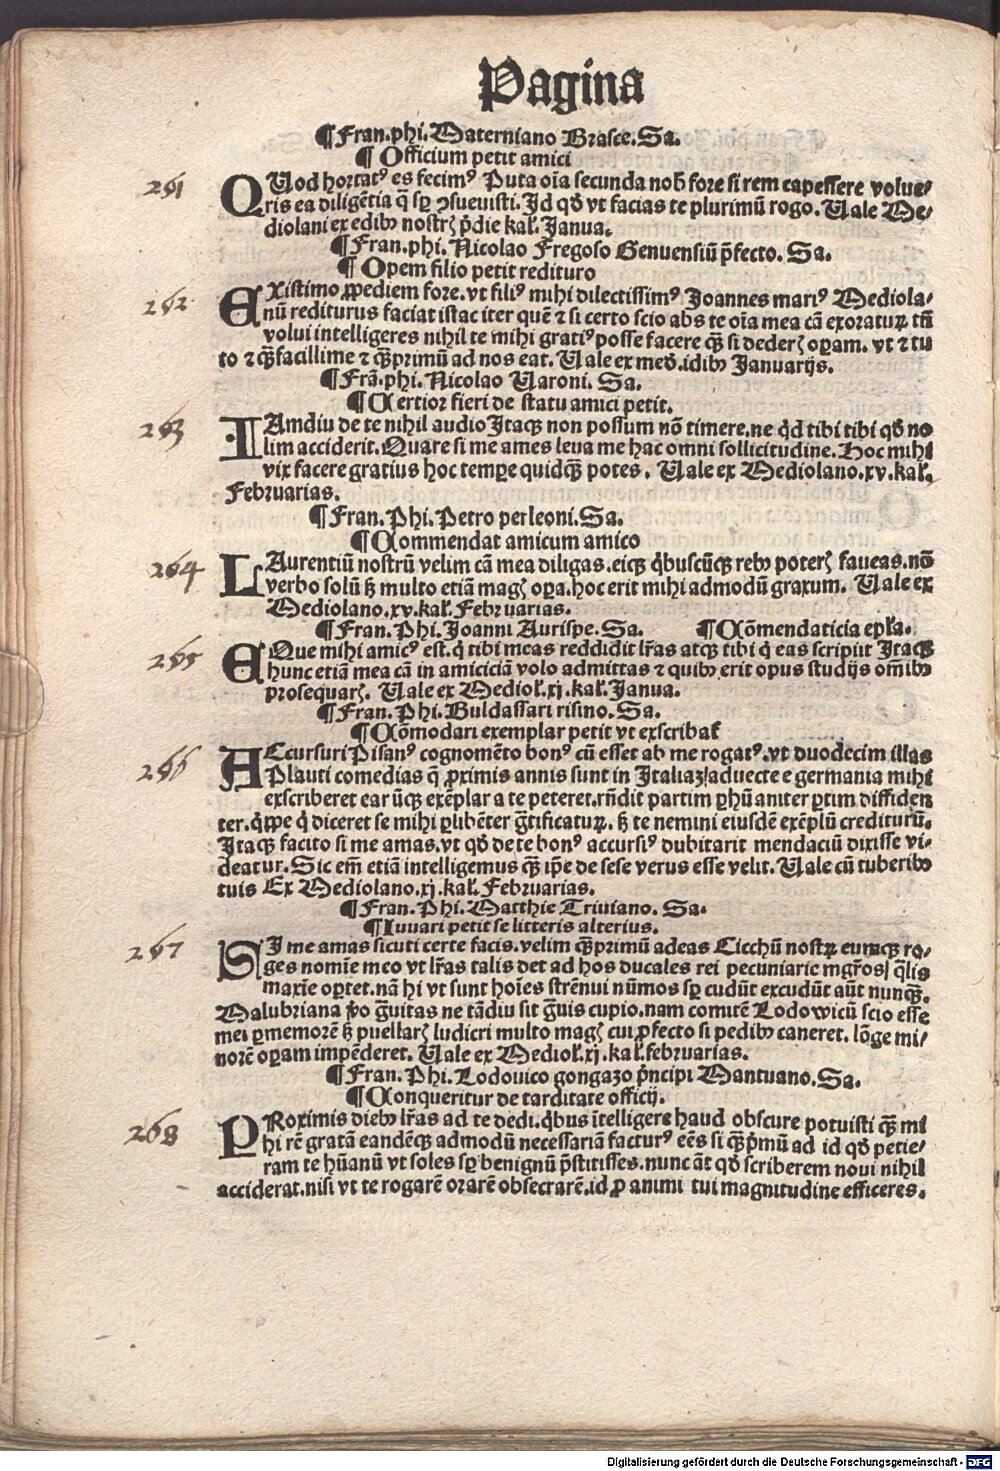 Pagina
¶Fran.phi.Materniano Brasce.Sa.
¶ Officium petit amici
261 QUod hortatꝰ es fecimꝰ Puta oīa secunda nob̄ fore si rem capessere volue⸗
ris ea diligētia q̄ sꝑ ꝯsueuisti.Id qď vt facias te plurimū rogo.Uale Me⸗
diolani ex edibꝫ nostrꝭ p̄die kaƚ.Janua.
¶Fran.phi.Nicolao Fregoso Genuensiū p̄fecto. Sa.
¶ Opem filio petit redituro
262 EXistimo ꝓpediem fore.vt filiꝰ mihi dilectissimꝰ Joannes mariꝰ Mediola⸗
nū rediturus faciat istac iter quē ⁊ si certo scio abs te oīa mea cā exoraturꝝ tn̄
volui intelligeres nihil te mihi gratiꝰ posse facere qꝫ̄ si dederꝭ oꝑam. vt ⁊ tu
to ⁊ qꝫ̄facillime ⁊ qꝫ̄primū ad nos eat. Uale ex med̄.idibꝫ Januarijs.
¶Frā.phi. Nicolao Uaroni. Sa.
¶Certior fieri de statu amici petit.
263 IAmdiu de te nihil audio Itaqꝫ non possum nō timere.ne qd̓ tibi tibi qď no
lim acciderit.Quare si me ames leua me hac omni sollicitudine.Hoc mihi
vix facere gratius hoc temꝑe quidqꝫ̄ potes. Uale ex Mediolano.xv.kaƚ.
Februarias.
¶Fran.Phi.Petro perleoni.Sa.
¶Commendat amicum amico
264 LAurentiū nostrū velim cā mea diligas.eiqꝫ qͥbuscūqꝫ rebꝫ poterꝭ faueas.nō
verbo solū sꝫ multo etiā magꝭ oꝑa.hoc erit mihi admodū gratum. Uale ex
Mediolano.xv.kaƚ.Februarias.
¶Fran.Phi.Joanni Aurispe.Sa. ¶Cōmendaticia epƚa.
265 EQue mihi amicꝰ est.qͥ tibi meas reddidit lr̄as atqꝫ tibi qͥ eas scripsit Itaqꝫ
hunc etiā mea cā in amiciciā volo admittas ⁊ quibꝫ erit opus studijs om̄ibꝫ
prosequarꝭ. Uale ex Medioƚ.xj.kaƚ.Janua.
¶Fran.Phi.Buldassari risino.Sa.
¶Cōmodari exemplar petit vt exscribat̃
266 ACcursuri Pisanꝰ cognomēto bonꝰ cū esset ab me rogatꝰ.vt duodecim illas
Plauti comedias q̄ ꝓximis annis sunt in Italiaꝫ aduecte e germania mihi
exscriberet earūqꝫ exēplar a te peteret.rn̄dit partim ꝑhūaniter ꝑtim diffiden
ter.qͥppe qͥ diceret se mihi ꝑlibēter gͣtificaturꝝ. sꝫ te nemini eiusdē exēplū crediturū.
Itaqꝫ facito si me amas.vt qď de te bonꝰ accursiꝰ dubitarit mendaciū dixisse vi⸗
deatur.Sic em̄ etiā intelligemus qꝫ̄ ip̄e de sese verus esse velit. Uale cū tuberibꝫ
tuis Ex Mediolano.xj.kaƚ.Februarias.
¶Fran.Phi.Matthie Triuiano. Sa.
¶Iuuari petit se litteris alterius.
267 SI me amas sicuti certe facis.velim qꝫ̄primū adeas Cicchū nostrꝝ eumqꝫ ro⸗
ges nomīe meo vt lr̄as talis det ad hos ducales rei pecuniarie mgr̄os/ q̄lis
maxīe oꝑtet.nā hi vt sunt hoīes strēnui nūmos sꝑ cudūt excudūt aūt nunqꝫ̄.
Malubriana ꝟo gͣuitas ne tādiu sit gͣuis cupio.nam comitē Lodowicū scio esse
mei ꝑmemorē sꝫ puellarꝭ ludicri multo magꝭ cui ꝓfecto si pedibꝫ caneret. lōge mi⸗
norē oꝑam impēderet. Uale ex Medioƚ.xj.kaƚ.februarias.
¶Fran.Phi.Lodouico gongazo p̄ncipi Mantuano.Sa.
¶Conqueritur de tarditate officij.
268 PRoximis diebꝫ lr̄as ad te dedi.qͥbus ītelligere haud obscure potuisti qꝫ̄ mi
hi rē gratā eandēqꝫ admodū necessariā facturꝰ eēs si qꝫ̄pͥmū ad id qď petie⸗
ram te hūanū vt soles sꝑ benignū p̄stitisses.nunc āt qď scriberem noui nihil
acciderat.nisi vt te rogarē orarē obsecrarē.id ꝓ animi tui magnitudine efficeres.
Digitalisierung gefördert durch die Deutsche Forschungsgemeinschaft - DFG